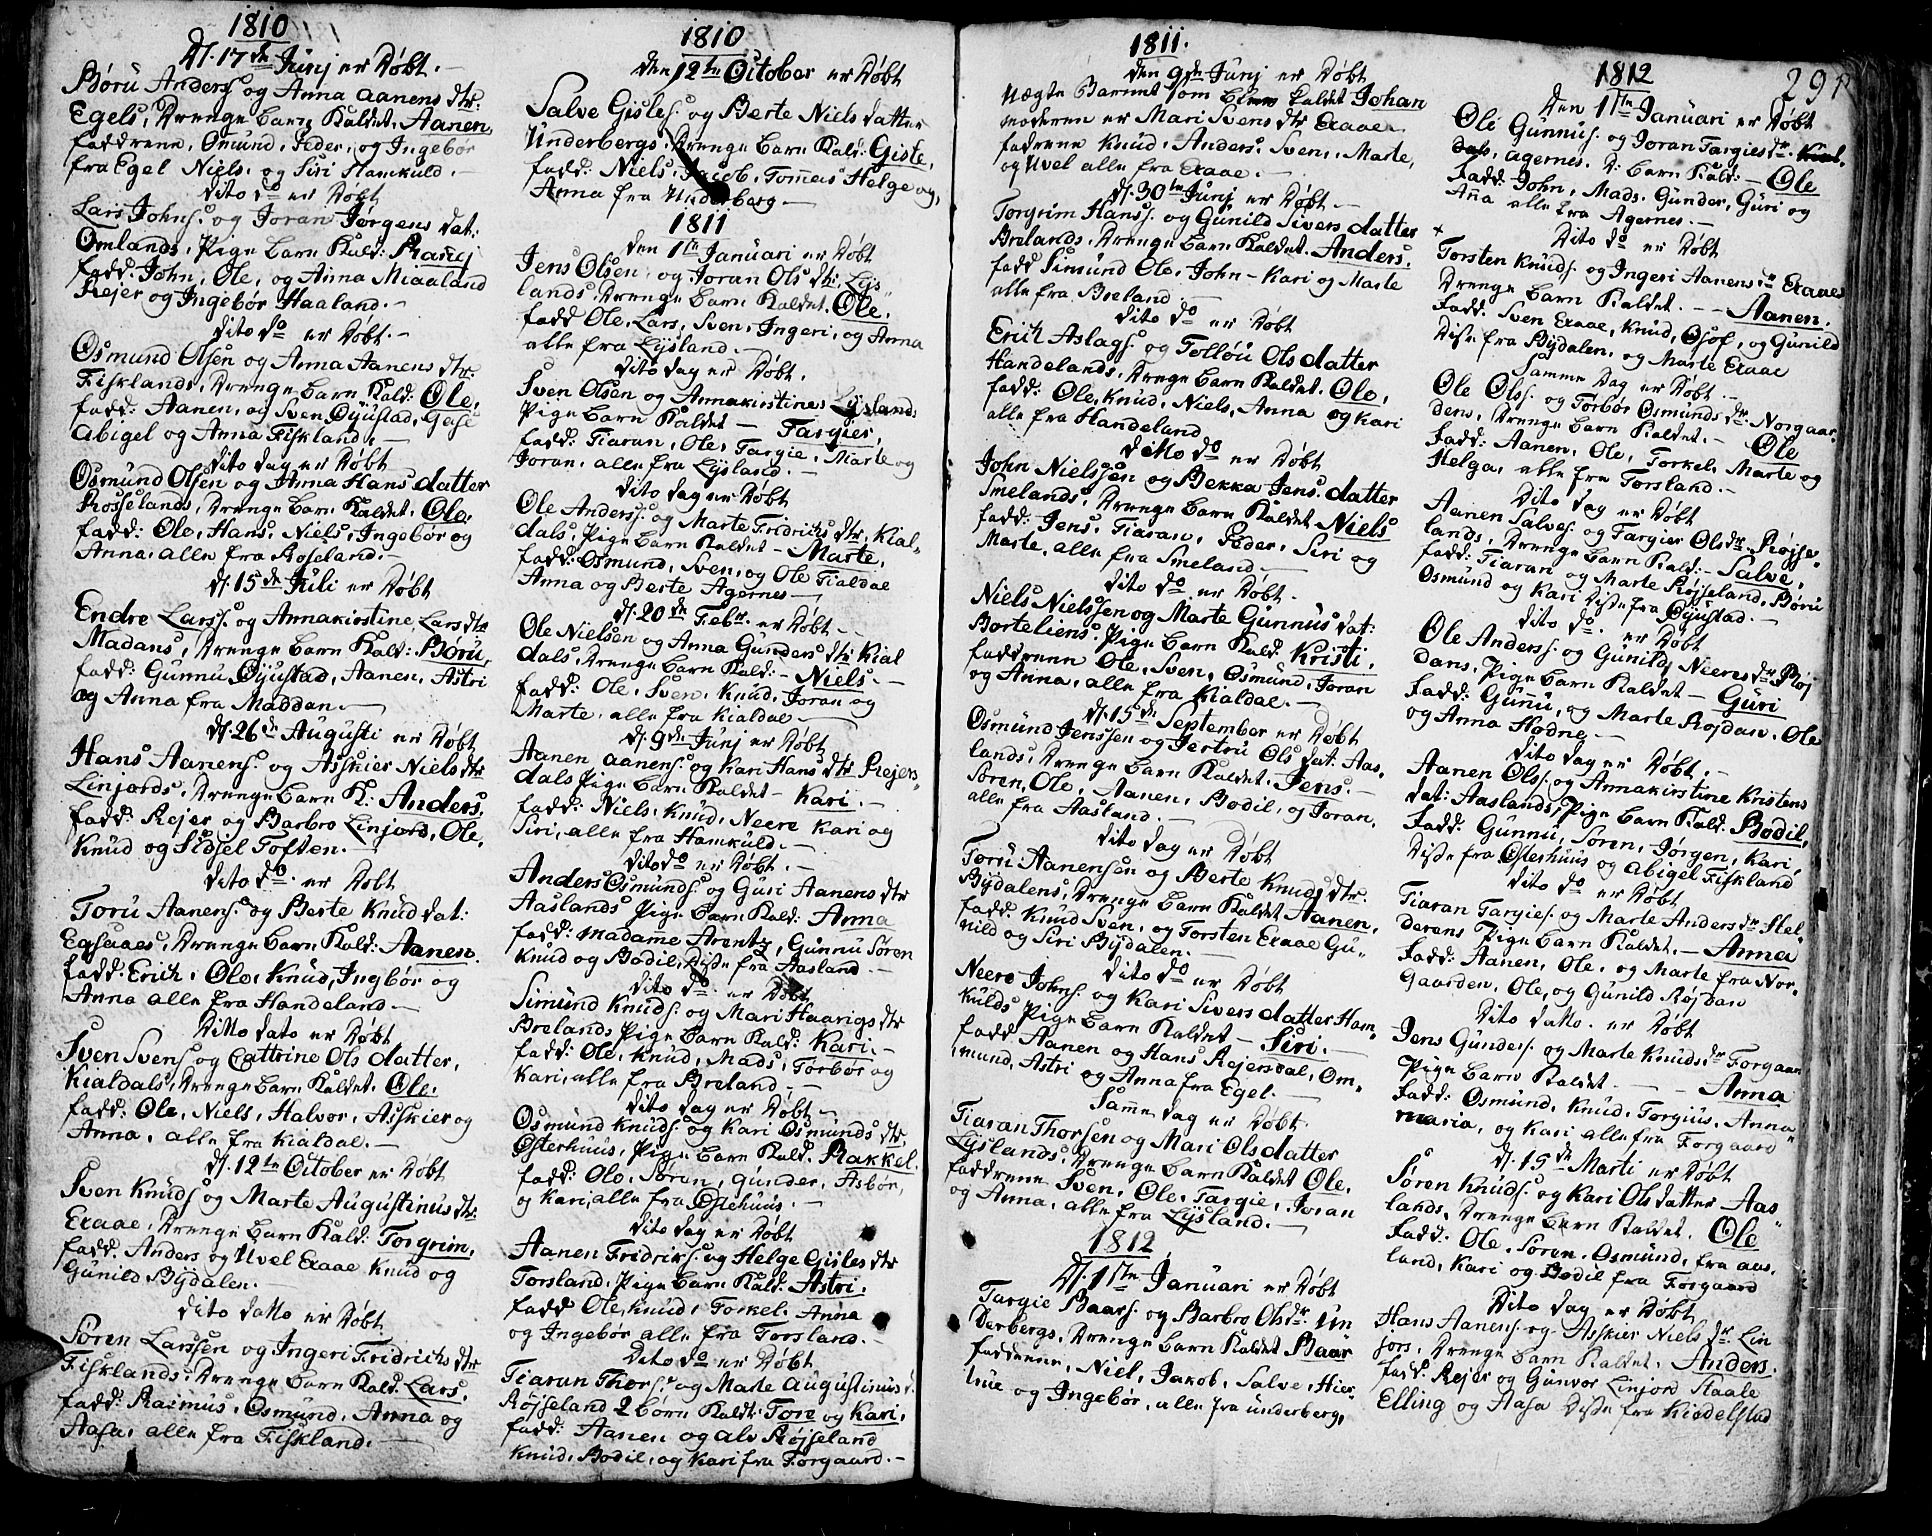 1810
Dj. 17de Junj er Døbt.
Børu Anders: og Anna Aanens dtr:
Egels, Drenge barn Kaldet. Aanen
faddrene, Omund, Peder, og Ingebør
fra Egel Niels, og Siri Hamkuld.
Dito do er Døbt
Lars Johns: og Joran Jørgens dat:
Omlands, Pige barn Kald: Ranej
fadd. John, Ole, og Anna Miaaland
Rejer og Ingebør Haaland.
Dito do er Døbt.
Osmund Olsen og Anna Aanens dtr:
Fisklands, Drenge barn Kald: Ole,
fadd: Aanen, og Sven Øyustad, Gese
Abigel og Anna Fiskland,
Dito dag er Døbt
Osmund Olsen og Anna Hans datter
Rosselands, Drenge barn Kaldet. Ole.
fadd: Ole, Hans, Niels, Ingebør og
Anna, alle fra Roseland.
Dj. 15de Juli er Døbt
Endre Larss. og Annakirstine Lars dtr
Madans, Drenge barn Kald: Børu,
fadd: Gunnu Øyustad, Aanen, Astri
og Anna fra Maddan.
Dj. 26de Augusti er Døbt
Hans Aanens. og Asskier Niels dtr
Linjords, Drenge barn K: Anders,
fadd: Rejer og Barbro Linjord, Ole,
Knud og Sidsel Toften.
Dito do. er Døbt
Toru Aanens: og Berte Knud dat:
Egsaaes, Drenge barn Kald: Aanen.
fadd: Erich, Ole, Knud, Ingbør og
Anna alle fra Handeland.
Ditto dato er Døbt
Sven Svens og Cattrine Ols datter,
Kialdals, Drenge barn Kaldet. Ole.
fadd: Ole, Niels, Halvor, Asskier og
Anna, alle fra Kialdal.
Dj. 12te October er Døbt
Sven Knuds og Marte Augustinus dtr:
Eraae, Drenge barn Kald: Torgrim,
fadd. Anders og Uvel Eraae Knud og
Gunild Bydalen.
Dito datto er Døbt
Søren Larssen og Ingeri Fridrichs dtr
Fisklands, Drenge barn Kald. Lars.
fadd: Rasmus, Osmund, Anna og
Aasa, alle fra Fiskland.
1810
den 12te October er Døbt
Salve Gisles. og Berte Niels datter
Underbergs, Drenge barn Kald: Giste,
fadd: Niels, Jacob, Tommas Helge og,
Anna fra Underberg.
1811
den 1te Januari er Døbt
Jens Olsen, og Joran Ols dtr: Lys-
lands, Drenge barn Kaldet. Ole,
fadd Ole, Lars, Sven, Ingeri, og Anna
alle fra Lysland.
Dito dag er Døbt.
Sven Olsen og Annakirstines Lyslands
Pige barn Kaldet — Targier,
fadd: Tiaran, Ole, Targie, Marte og
Joran, alle fra Lysland.
Dito dag er Døbt
Ole Anders: og Marte Fridrichs dtr, Kial-
dals, Pige barn Kaldet — Marte,
fadd: Osmund, Sven, og Ole Tialdae
Anna og Berte Agernes
Dj. 20de Febr. er Døbt
Ole Nielsen og Anna Gunders dtr Kial
dals, Drenge barn Kald: — Niels.
fadd: Ole, Sven, Knud, Joran og
Marte, alle fra Kialdal.
Dj. 9de Junj er Døbt
Aanen Aanens: og Kari Hans dtr Rejers-
dals Pige barn Kaldet — Kari.
fadd: Niels, Knud, Neere Kari og
Siri, alle fra Hamkuld.
Dito do er Døbt.
Anders Osmunds. og Guri Aanens dtr
Aaslands Pige barn Kald: Anna
fadd: Madamme Arentz, Gunnu Søren
Knud og Bodil, Disse fra Aasland.
Dito do. er Døbt
Simund Knuds. og Mari Haarigs dtr
Brelands Pige barn Kald: Kari.
fadd: Ole, Knud, Mads, Torbør og
Kari, alle fra Breland.
Dito dag er Døbt
Osmund Knuds. og Kari Osmunds dtr,
Østerhuus, Pige barn Kald. Rakkel.
fadd: Ole, Søren, Gunder, Asbør,
og Kari, alle fra Østehuus.
Dito dag er Døbt
Aanen Fridriks: og Helge Gisles dtr
Torsland, Pige barn Kald: Astri.
fadd Ole, Knud, Torkel, Anna
og Ingebør alle fra Torsland.
Dito do er Døbt
Tiaran Thors: og Marte Augustinus d.
Røjseland 2 børn Kaldt: Tore og Kari,
fadd: Aanen og Alv Røjseland
Knud, Bodil, og Kari fra Forgaard.
1811.
den 9de Junj er Døbt
Uægte Barnet som blev kaldet Johan
moderen er Mari Svens dtr Eraae.
fadrene Knud, Anders, Sven, Marte,
og Uvel alle fra Eraae.
Dj. 30te Junj er Døbt
Torgrim Hanss. og Gunild Sivers datter
Brelands, Drenge barn Kaldet. Anders.
fadd Simund Ole, John — Kari og Marte
alle fra Breland
Dito do er Døbt
Erich Aslags. og Tolløu Ols datter
Handelands, Drenge barn Kaldet. Ole,
fadd: Ole, Knud, Niels, Anna og Kari
alle fra Handeland
Ditto do er Døbt
John Nielssen og Bekka Jens. datter
Smelands, Drenge barn Kaldet Niels
fadd: Jens, Tiaran, Peder, Siri og
Marte, alle fra Smeland
Dito do er Døbt.
Niels Nielssen og Marte Gunnus dat:
Borteliens, Pige barn Kald. Kristi,
faddrene Ole, Sven, Osmund, Joran
og Anna, alle fra Kialdae.
Dj. 15de September er Døbt
Osmund Jenssen og Jertru Ols dat: Aas,
lands, Drenge barn Kaldet. Jens.
Søren, Ole, Aanen, Bodil, og Joran,
alle fra Aasland.
Dito dag er Døbt
Toru Aanensen og Berte Knuds dtr.
Bydalens, Drenge barn Kaldet Aanen,
fadd. Knud Sven, og Torsten Eraae Gu-
nild og Siri Bydalen.
Dito do er Døbt
Neere Johns. og Kari Sivers datter Ham-
kulds Pige barn Kaldet — Siri.
fadd: Aanen og Hans Rejersdal, Om-
mund, Astri og Anna fra Egel.
Samme dag er Døbt.
Tiaran Thorsen og Mari Ols datter
Lyslands, Drenge barn Kaldet Ole,
faddrene Sven, Ole, Targie, Joran
og Anna, alle fra Lysland.
1812
Dj. 1ste Januari er Døbt
Targie Baars. og Barbro Ols dr. Un
derbergs, Drenge barn Kaldet Baar
faddrene, Niel, Jakob, Salve, Hier-
true og Ingebør, alle fra Underberg,
1812
291
Den 1te Januari er Døbt
Ole Gunnus. og Joran Targies dr Kial-
dals, Agernes. D: barn Kald: — Ole
fadd: John, Mads, Gunder, Guri og
Anna alle fra Agernes.
Dito do er Døbt
Torsten Knuds. og Ingeri Aanens dr Eraaes
Drenge barn Kaldet. — Aanen.
fadd: Sven Eraae, Knud, Osof, og Gunild
Disse fra Bydalen, og Marte Eraae
Samme Dag er Døbt.
Ole Ols. og Torbør Osmunds dr. Norgaar
dens, Drenge barn Kaldet. — Ole
fadd: Aanen, Ole, Torkel, Marte og
Helga, alle fra Torsland.
Dito dag er Døbt
Aanen Salves. og Targier Ols dr. Røjse-
lands, Drenge barn Kald: — Salve,
fadd: Tiaran og Marte Røjseland, Børu
Osmund og Kari Disse fra Øyustad.
Dito do. er Døbt
Ole Anders. og Gunilds Neeres dr Røj
dans, Pige barn Kaldet — Guri
fadd: Gunnu, og Marte Røjdan, Ole
og Anna Hodne.
Dito dag er Døbt.
Aanen Ols. og Annakirstine Kristens
dat: Aaslands, Pige barn Kald. Bodil,
fadd: Gunnu, Søren, Jørgen, Kari,
Disse fra Østerhuus og Abigel Fiskland
Dito do er Døbt
Tiaran Targies. og Marte Anders dr Hel-
derens Pige barn Kaldet. — Anna
fadd: Aanen, Ole, og Marte fra Nor-
gaarden, Ole, og Gunild Røjdan
Dito datto. er Døbt
Jens Gunders. og Marte Knuds dr Forgaan
Pige barn Kaldet — Anna
fadd: Osmund, Knud, Torgius, Anna-
maria, og Kari alle fra Forgaard
Dj. 15de Marti er Døbt
Søren Knuds. og Kari Ols datter Aas-
lands, Drenge barn Kaldet. Ole
fadd: Ole, Søren, Osmund, fra Aas-
land, Kari og Bodil fra Forgaard
Dito dag er Døbt,
Hans Aanens. og Asskier Niels dr. Lin
jors, Drenge barn Kaldet. Anders.
fadd: Rejer og Gunvor Linjord Staale
Elling og Aasa Disse fra Kiødelstad